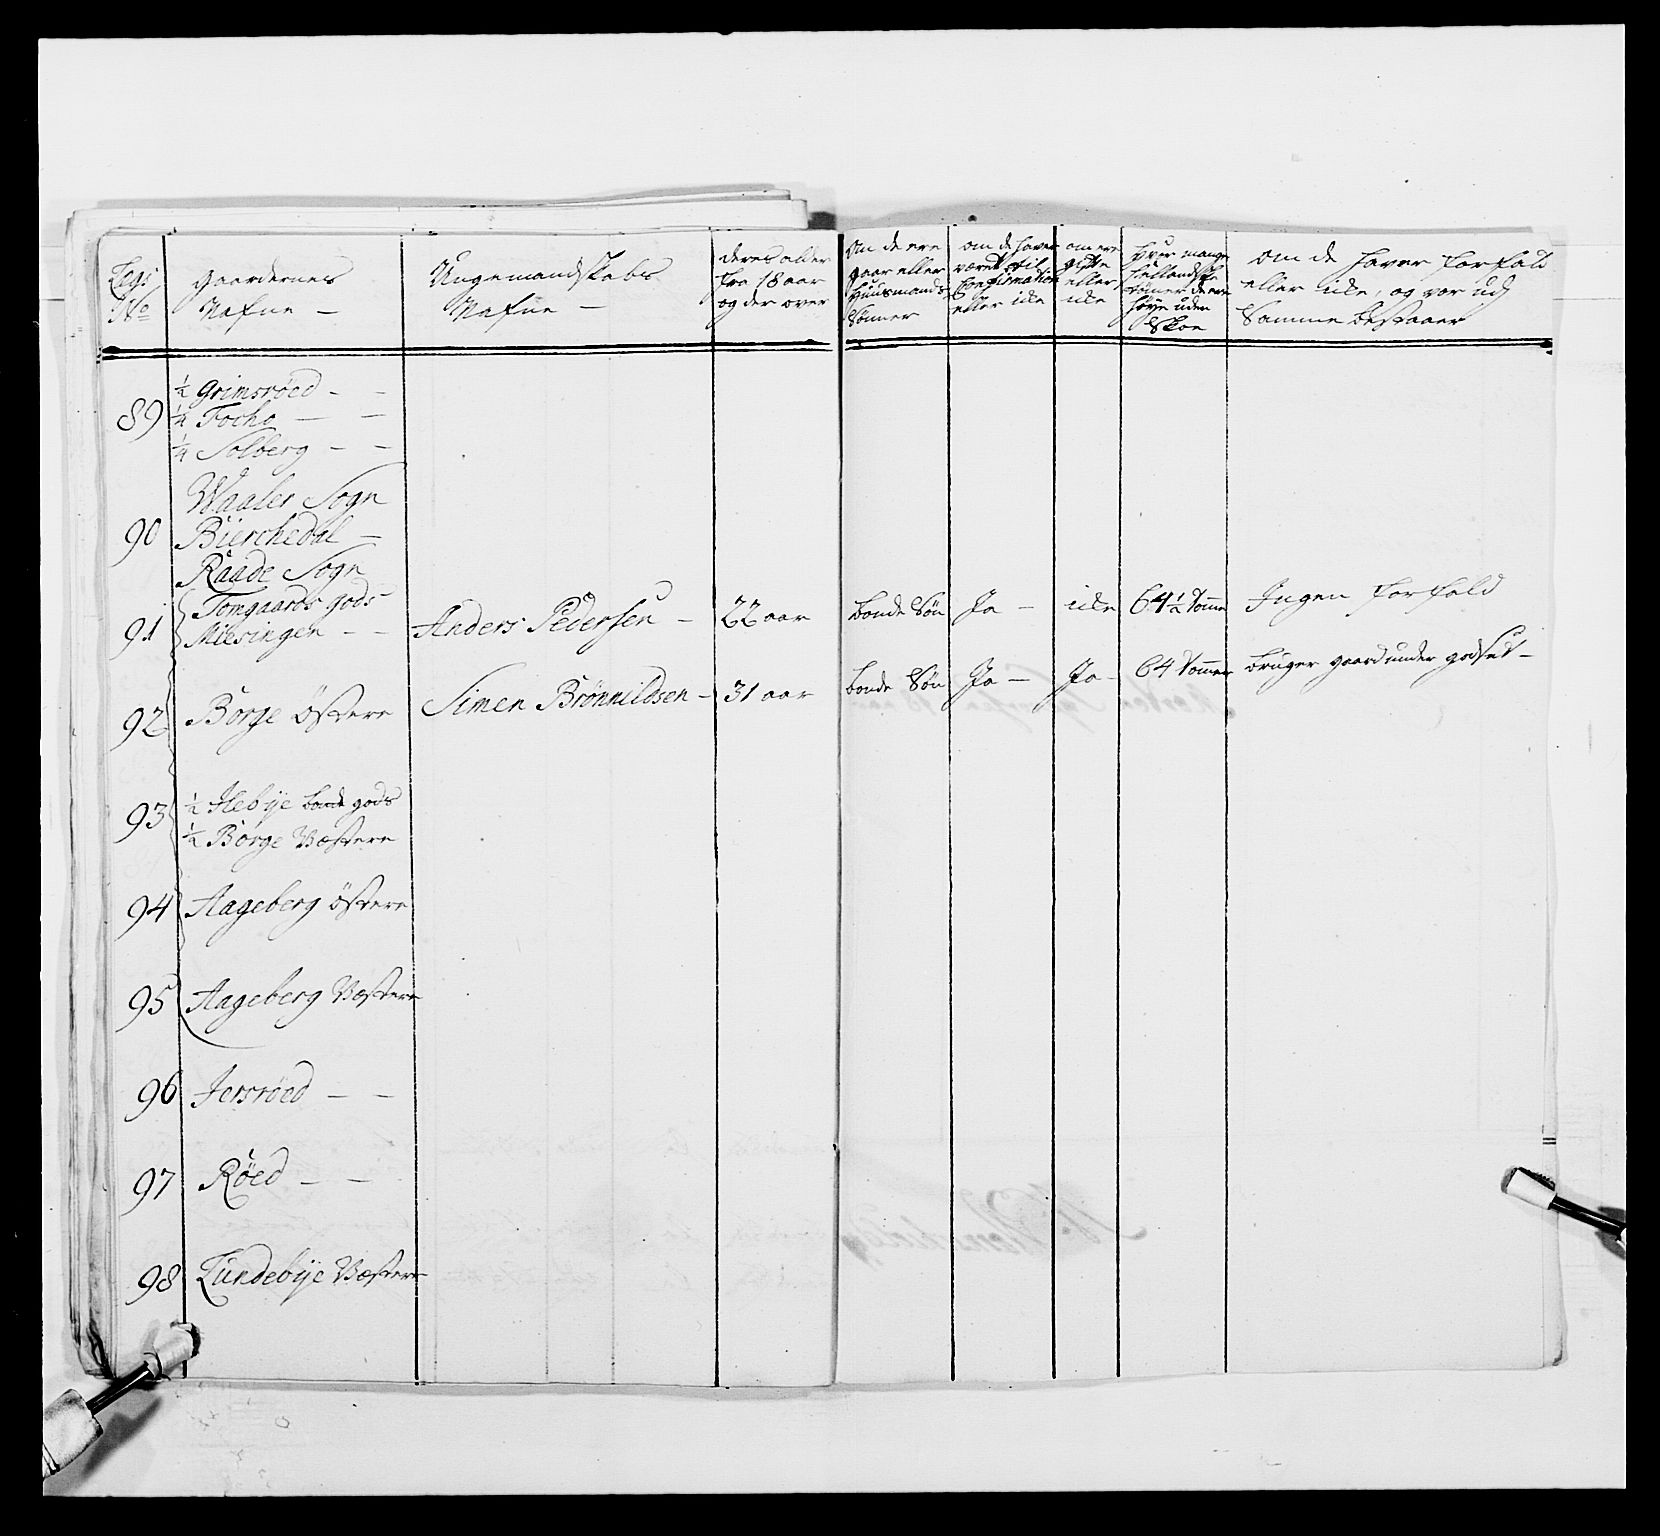 Legs No
gaardernes Nafne –
Ungemandskabs Nafne –
deres alder fra 18 aar og der over
Om de ere gaar eller Huusmands Sönner
om de haver været til Confirmation eller icke
om ere gifte eller icke
hvor mange Sellandske tommer de ere höye uden Skoe
om de haver forfald eller icke, og vor udj Samme bestaaer
89 ½ Grimsröed – –
¼ Focho – –
¼ Solberg – –
Waaler Sogn
90 Bierchedal –
Raade Sogn
Tomgaards gods
91 Missingen – – Anders Pedersen – 22 aar bonde Sön Ja – icke 64½ Tomme Ingen forfald
92 Borge östere Simen Brönnildsen – 31 aar bonde Sön Ja – Ja – 64 Tommer bruger gaard under godset –
93 ½ Ilebÿe bonde gods
½ Borge Væstere
94 Aageberg östere
95 Aageberg Væstere
96 Jersröed – –
97 Röed – –
98 Lundebÿe Væstere